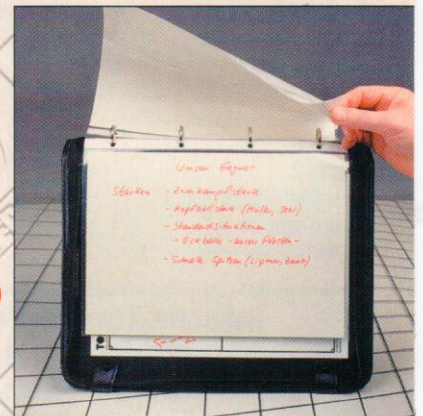 Unser Gegner
Stärken - Zweikampfstark
- Kopfballstark (Müller,
- Standardsituationen
- Eckbälle - kurzer Pfosten -
- Schnelle Spitzen (Lipmann,
TO